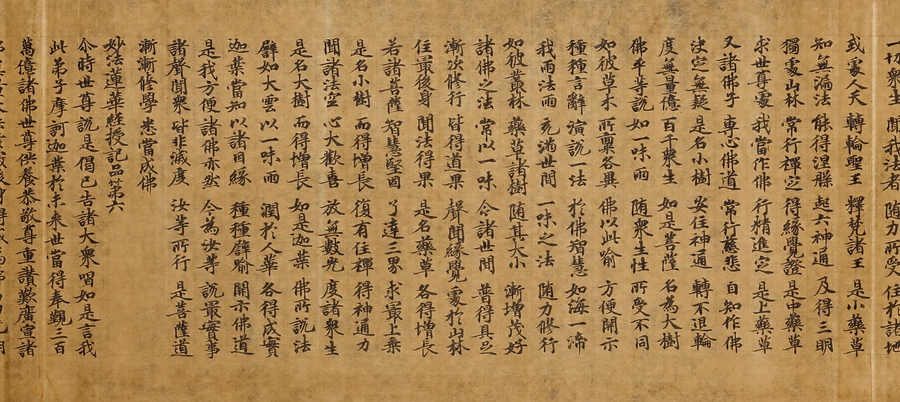 一切衆生 聞我法者 隨力所受 住於諸地
或處人天 轉輪聖王 釋梵諸王 是小藥草
知無漏法 能得涅槃 起六神通 及得三明
獨處山林 常行禪定 得緣覺證 是中藥草
求世尊處 我當作佛 行精進定 是上藥草
又諸佛子 專心佛道 常行慈悲 自知作佛
決定無疑 是名小樹 安住神通 轉不退輪
度無量億 百千衆生 如是菩薩 名為大樹
佛平等說 如一味雨 隨衆生性 所受不同
如彼草木 所稟各異 佛以此喻 方便開示
種種言辭 演說一法 於佛智慧 如海一渧
我雨法雨 充滿世間 一味之法 隨力修行
如彼叢林 藥草諸樹 隨其大小 漸增茂好
諸佛之法 常以一味 令諸世間 普得具足
漸次修行 皆得道果 聲聞緣覺 處於山林
住最後身 聞法得果 是名藥草 各得增長
若諸菩薩 智慧堅固 了達三界 求最上乘
是名小樹 而得增長 復有住禪 得神通力
聞諸法空 心大歡喜 放無數光 度諸衆生
是名大樹 而得增長 如是迦葉 佛所說法
譬如大雲 以一味雨 潤於人華 各得成實
迦葉當知 以諸因緣 種種譬喻 開示佛道
是我方便 諸佛亦然 今為汝等 說最實事
諸聲聞衆 皆非滅度 汝等所行 是菩薩道
漸漸修學 悉當成佛
妙法蓮華經授記品第六
尒時世尊說是偈已告諸大衆唱如是言我
此弟子摩訶迦葉於未來世當得奉覲三百
萬億諸佛世尊供養恭敬尊重讚歎廣宣諸